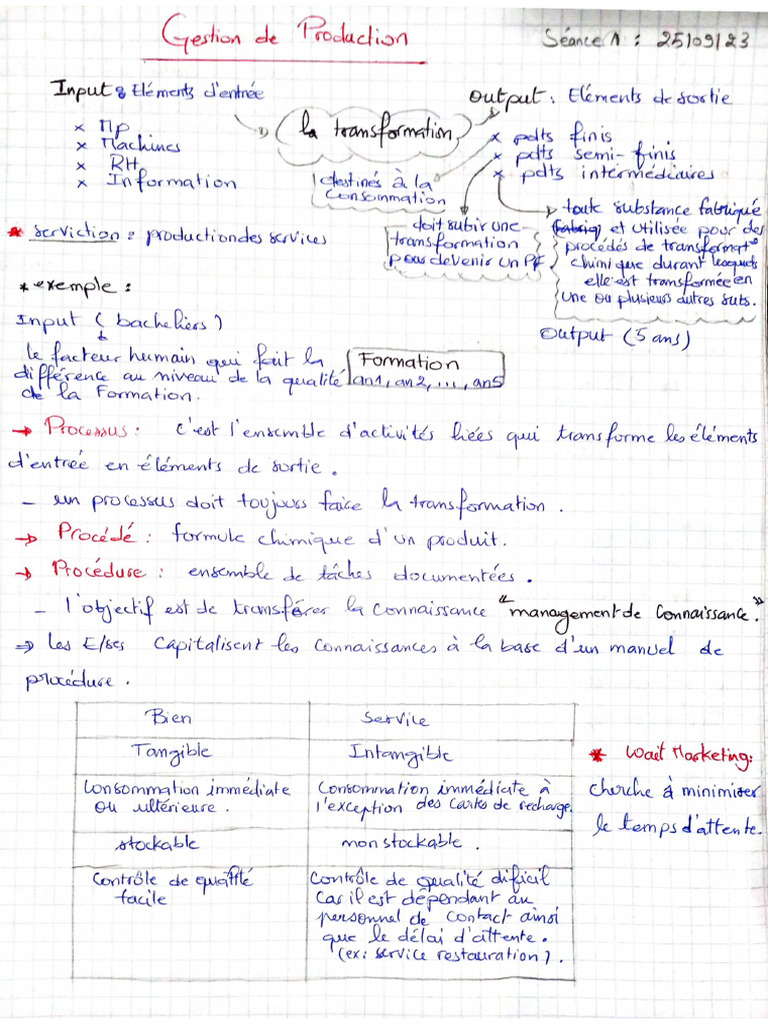 Gestion de Production
Séance 1 : 25/09/23
Input : Eléments d'entrée
x Mp
x Machines
x RH
x Information
la transformation
Output : Eléments de sortie
x pdts finis
x pdts semi-finis
x pdts intermédiaires
destinés à la
consommation
doit subir une
transformation
pour devenir un PF
toute substance fabriquée
et utilisée pour des
procédés de transformat°
chimique durant lesquels
elle est transformée en
une ou plusieurs autres subs.
* serviction : production des services
* exemple :
Input ( bacheliers )
le facteur humain qui fait la
différence au niveau de la qualité
de la Formation.
Formation
an1, an2, ..., an5
Output (5 ans)
→ Processus : c'est l'ensemble d'activités liées qui transforme les éléments
d'entrée en éléments de sortie.
- un processus doit toujours faire la transformation.
→ Procédé : formule chimique d'un produit.
→ Procédure : ensemble de tâches documentées.
- l'objectif est de transférer la connaissance "management de connaissance."
⇒ les E/ses capitalisent les connaissances à la base d'un manuel de
procédure.
Bien
Service
Tangible
Intangible
Consommation immédiate
ou ultérieure.
Consommation immédiate à
l'exception des cartes de recharge.
stockable
non stockable.
Contrôle de qualité
facile
Contrôle de qualité dificil
car il est dépendant au
personnel de contact ainsi
que le délai d'attente.
(ex : service restauration).
* Wait Marketing :
cherche à minimiser
le temps d'attente.